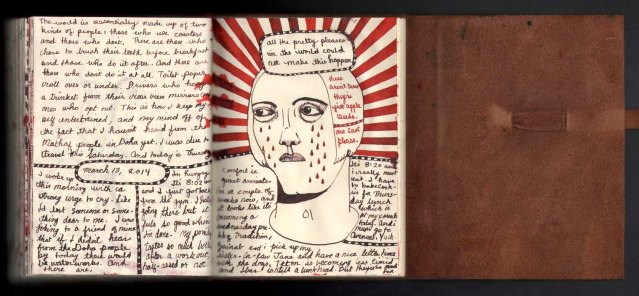 The world is essentially made up of two
kinds of people: those who use coasters
and those who don't. There are those who
chose to brush their teeth before breakfast
and those who do it after. And there are
those who don't do it at all. Toilet paper
roll over or under. Drivers who hang
a trinket from their rear view mirrors &
ones who opt out. This is how I keep my
self entertained, and my mind off of
the fact that I haven't heard from the
Mathaf people in Doha yet. I was due to
travel this Saturday. And today is Thursday
March 13, 2014
I woke up
this morning with a
strong urge to cry. Like
I'd lost someone or some
thing dear to me. I was
talking to a friend of mine
that if I didn't hear
from the Doha people
by today there would
be water works. And
there are.
I'm hungry.
Its 8:20 and
and I just got back
from the gym. I hate
going there but it
feels so good when
I'm done. My
tastes so much better
after a work out,
half-assed or not
all the pretty pleases
in the world could
not make this happen
these
aren't tears
they're
apple
seeds.
one last
please.
Comfort is
great
in a couple of
weeks now, and
it looks like its
becoming a
wednesday
tradition,
and I pick up my
sister-in-law Jana and have a nice
with the dog. Teton is becoming less timid,
and
Its 8:20 and
i really must
eat. I have
to
for Thurs-
day lunch
which is
at my parents
today. And i
must go to
Yuck